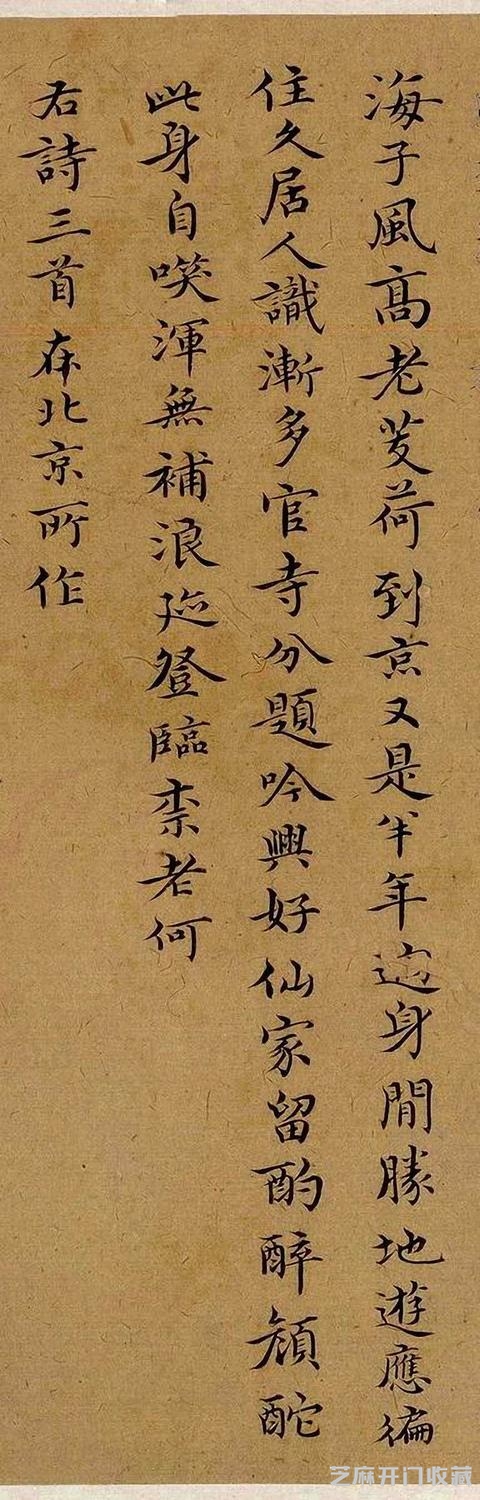 海子風髙老芰荷到京又是半年過身閒勝地遊應徧
住久居人識漸多官寺分題吟興好仙家留酌醉顔酡
此身自喫渾無補浪迹登臨柰老何
右詩三首在北京所作
芝麻开门收藏